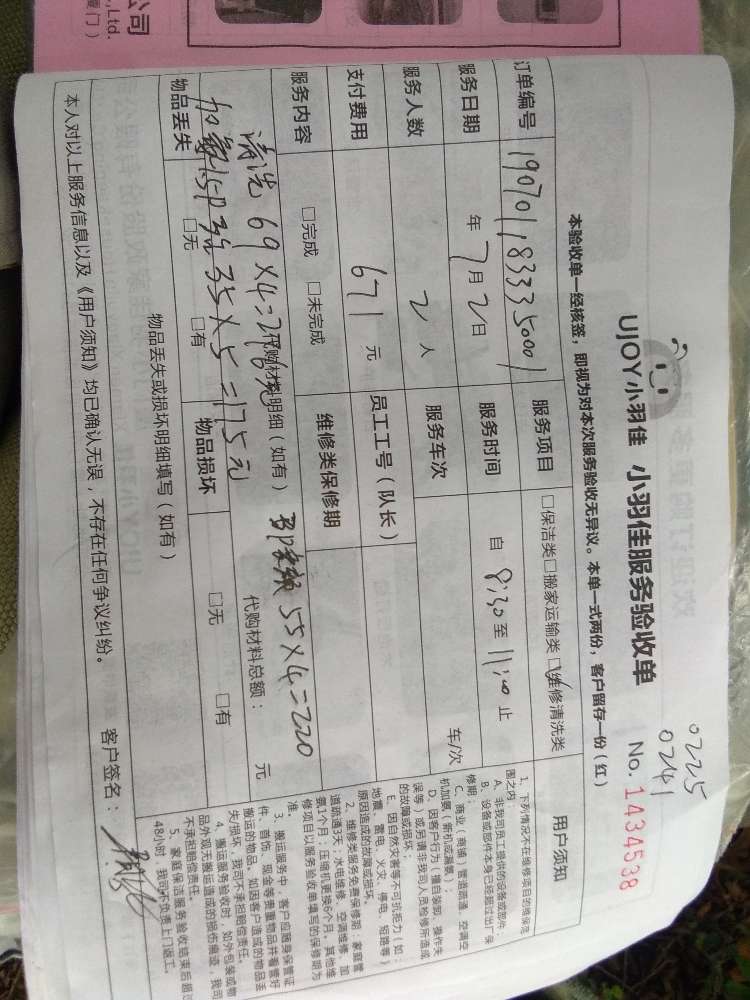 公司
,Ltd.
厦门）
0225
0241
UJOY小羽佳 小羽佳服务验收单 No. 1434538
本验收单一经核签，即视为对本次服务验收无异议。本单一式两份，客户留存一份（红）
订单编号 1907011833350001 服务项目 □保洁类□搬家运输类□维修清洗类
服务日期 年7月2日 服务时间 自8:30至11:00止
服务人数 2人 服务车次 车/次
支付费用 671元 员工工号（队长）
服务内容 □完成 □未完成 维修类保修期
代购材料明细（如有） 代购材料总额： 元
清洗 69×4=276元 55×4=220
35×5=175元
物品丢失 □无 □有 物品损坏 □无 □有
物品丢失或损坏明细填写（如有）
本人对以上服务信息以及《用户须知》均已确认无误，不存在任何争议纠纷。
客户签名：
用户须知
1、下列情况不在维修项目的维保范
围之内：
A、非我司员工提供的设备或部件；
B、设备或部件本身已经超过出厂保
修期；
C、商业（商铺）管道疏通、空调空
机加氨（新机或漏氨）；
D、因客户行为（擅自装卸、操作失
误等）或另请非我司人员检修所造成
的故障或损坏；
E、因自然灾害等不可抗拒力（如：
地震、雷电、火灾、停电、短路等）
原因造成的故障或损坏。
2、维修类服务免费保修期：家庭管
道疏通5天；水电维修、空调维修、加
氨1个月；压缩机更换6个月。其他维
修项目以服务验收单填写的保修期为
准。
3、搬运服务中，客户应随身保管证
件、首饰、现金等贵重物品并看管好
搬运的物品，如因客户造成的物品丢
失/损坏，我司不承担赔偿责任。
4、搬运服务验收时，如外包装或物
品外观无搬运造成的损伤痕迹，我司
不承担赔偿责任。
5、家庭保洁服务验收结束后超过
48小时，我司不负责上门返工。